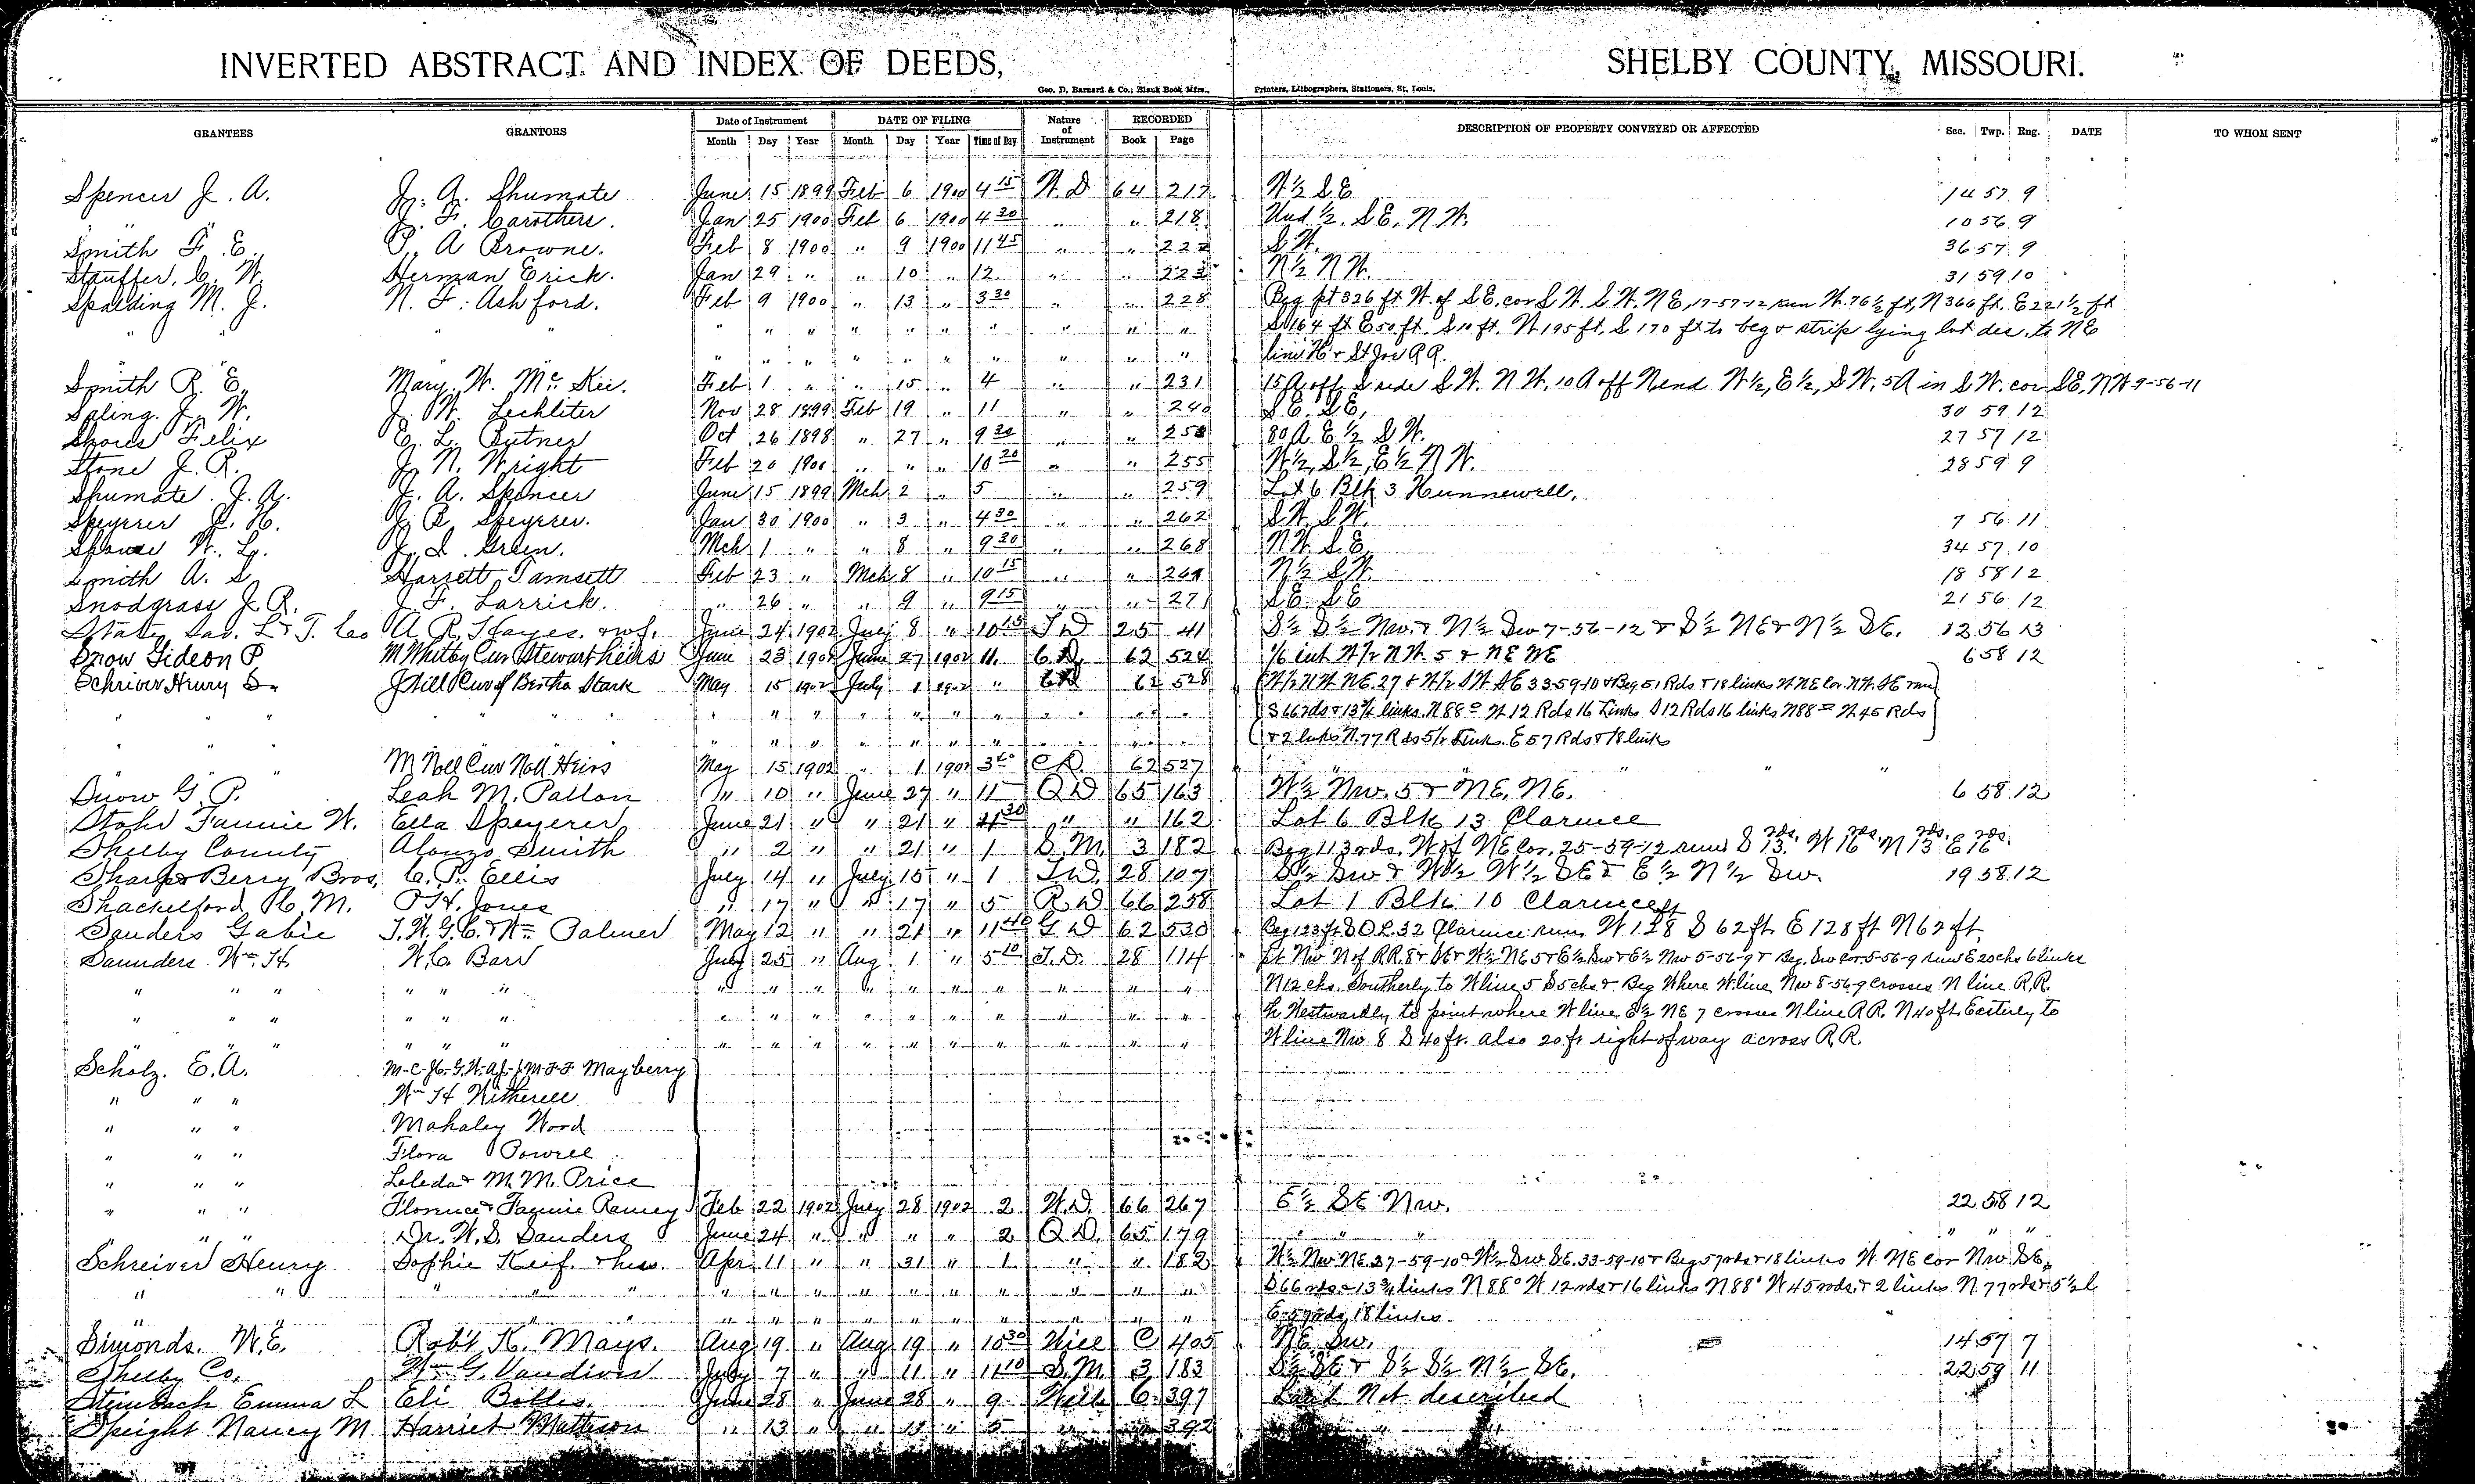 INVERTED ABSTRACT AND INDEX OF DEEDS, SHELBY COUNTY, MISSOURI.
Geo. D. Barnard & Co., Blank Book Mfrs., Printers, Lithographers, Stationers, St. Louis.
GRANTEES GRANTORS Date of Instrument DATE OF FILING Nature of Instrument RECORDED DESCRIPTION OF PROPERTY CONVEYED OR AFFECTED Sec. Twp. Rng. DATE TO WHOM SENT
Month Day Year Month Day Year Time of Day Book Page
Spencer J. A. J. A. Shumate June 15 1899 Feb 6 1900 4 15 W. D 64 217 W½ S E 14 57 9
" " J. F. Carothers. Jan 25 1900 Feb 6 1900 4 30 " " 218 Und ½ S E, N W. 10 56 9
Smith F. E. A Browne. Feb 8 1900 " 9 1900 11 45 " " 222 S W. 36 57 9
Stauffer, C. W. Herman Erick. Jan 29 " " 10 " 12 " " 223 N½ N W. 31 59 10
Spalding M. J. N. F. Ashford. Feb 9 1900 " 13 " 3 30 " " 228 Beg pt 326 ft W. of S E. cor S W. S W. N E, 17-57-12 run W. 76½ ft, N 366 ft. E 221½ ft
" " " " " " " " " " " " " S 164 ft E 50 ft. S 10 ft. W 195 ft. S 170 ft to beg & strip lying lot des. to N E
" " " " " " " " " " line H & St Joe R R.
Smith R. E. Mary W. McKee. Feb 1 " " 15 " 4 " " 231 15 A off S side S W. N W, 10 A off N end W½, E½, S W, 5 A in S W. cor S E, N W 9-56-11
Saling J. W. J. W. Lechliter Nov 28 1899 Feb 19 " 11 " " 240 S E. S E, 30 59 12
Shores Felix E. L. Putner Oct 26 1898 " 27 " 9 30 " " 80 A E½ S W. 27 57 12
Stone J. R. J. N. Wright Feb 20 1900 " " " 10 20 " " 255 W½, S½, E½ N W. 28 59 9
Shumate J. A. J. A. Spencer June 15 1899 Mch 2 " 5 " " 259 Lot 6 Blk 3 Hunnewell.
Speyerer J. H. J. B. Speyerer. Jan 30 1900 " 3 " 4 30 " " 262 S W. S W. 7 56 11
Spouse W. L. J. S. Green. Mch 1 " " 8 " 9 30 " " 268 N W. S E 34 57 10
Smith A. S. Harrett Tamsett Feb 23 " Mch 8 " 10 15 " " 269 N½ S W. 18 58 12
Snodgrass J. R. J. F. Larrick. " 26 " " 9 " 9 15 " " 271 S E. S E 21 56 12
State Sav. L & T. Co A. R. Hayes. & wf. June 24 1902 July 8 " 10 15 T D 25 41 S½ S½ Nw. & N½ Sw 7-56-12 & S½ NE & N½ SE. 12 56 13
Snow Gideon P M Whitby Cur Stewart heirs June 23 1902 June 27 1902 11 C D. 62 524 1/6 int W½ N W. 5 & N E N E 6 58 12
Schriver Henry J Hill Cur of Bertha Stark May 15 1902 July 1 1902 " C D 62 528 W½ N W NE. 27 & W½ S W SE 33-59-10 & Beg 51 Rds & 18 links W NE Cor. N W. SE run
" " " " " " " " " " " " " " S 66 rds & 13¾ links. N 88° W 12 Rds 16 Links S 12 Rds 16 links N 88° W 45 Rds
" " " " " " " " " " " " & 2 links N. 77 Rds 5½ Links. E 57 Rds & 18 links
" " " M Noll Cur Noll Heirs May 15 1902 " 1 1902 3 40 C D. 62 527 " " " "
Snow G. P. Leah M. Patton " 10 " June 27 " 11 Q D 65 163 W½ Nw. 5 & NE. NE. 6 58 12
Stohr Fannie W. Ella Speyerer June 21 " " 21 " " " 162 Lot 6 Blk 13 Clarence
Shelby County Alonzo Smith " 2 " " 21 " 1 S. M. 3 182 Beg 113 rds. W of NE Cor. 25-59-12 runs S 13 rds. W 16 rds. N 13 rds. E 16 rds.
Sharp & Berry Bros. C. P. Ellis July 14 " July 15 " 1 T D. 28 107 S½ Sw & W½ W½ SE & E½ N½ Sw. 19 58 12
Shackelford H. M. P H. Jones " 17 " " 17 " 5 R D 66 258 Lot 1 Blk 10 Clarence
Sanders Gabie T. W. G. C. & Wm Palmer May 12 " " 21 " 11 40 G D 62 530 Beg 123 ft S O L 32 Clarence run W 128 S 62 ft E 128 ft N 62 ft.
Saunders Wm. H. W. C. Barr July 25 " Aug 1 " 5 10 T. D. 28 114 pt Nw N of R R. 8 & SE & W½ NE 5 & E½ Sw & E½ Nw 5-56-9 & Beg. Sw cor 5-56-9 runs E 20 chs 6 links
" " " " " " " " " " " " " " " " N 12 chs. Southerly to W line 5 S 5 chs & Beg Where W line Nw 8-56-9 crosses N line R. R.
" " " " " " " " " " " " " " " " th Westwardly to point where W line S½ NE 7 crosses N line R R. N 40 ft Easterly to
" " " " " " " " " " " " " " " " W line Nw 8 S 40 ft. also 20 ft right of way across R. R.
Scholz. E. A. Mayberry
" " " Wm H Witherell
" " " Mahaley Word
" " " Flora Powell
" " " Leleda & M. M. Price
" " " Florence & Fannie Ramey Feb 22 1902 July 28 1902 2 W. D. 66 267 E½ SE Nw. 22 58 12
" " " Dr. W. S. Sanders June 24 " " " " 2 Q D. 65 179 " " " " " "
Schreiver Henry Sophie Keif. & hus. Apr 11 " " 31 " 1 " " 182 W½ Nw NE 27-59-10 & W½ Sw SE. 33-59-10 & Beg 57 rds & 18 links W. NE cor Nw SE.
" " " " " " " " " " " " " " " S 66 rds & 13¾ links N 88° W 12 rds & 16 links N 88° W 45 rods. & 2 links N. 77 rds & 5½ l
" " " " " " " " " " " " " " E 57 rds 18 links
Simonds. W. E. Robt K. Mays. Aug 19 " Aug 19 " 10 30 Will C 405 NE Sw. 14 57 7
Shelby Co. Wm. G. Vandiver July 7 " " 11 " 11 10 S. M. 3 183 S½ SE & S½ S½ N½ SE. 22 59 11
Stembach Emma L Eli Bolles June 28 " June 28 " 9 Will C. 397 Land Not described
Speight Nancy M Harriet Mattison " 13 " " 13 " 5 " " 392 " "